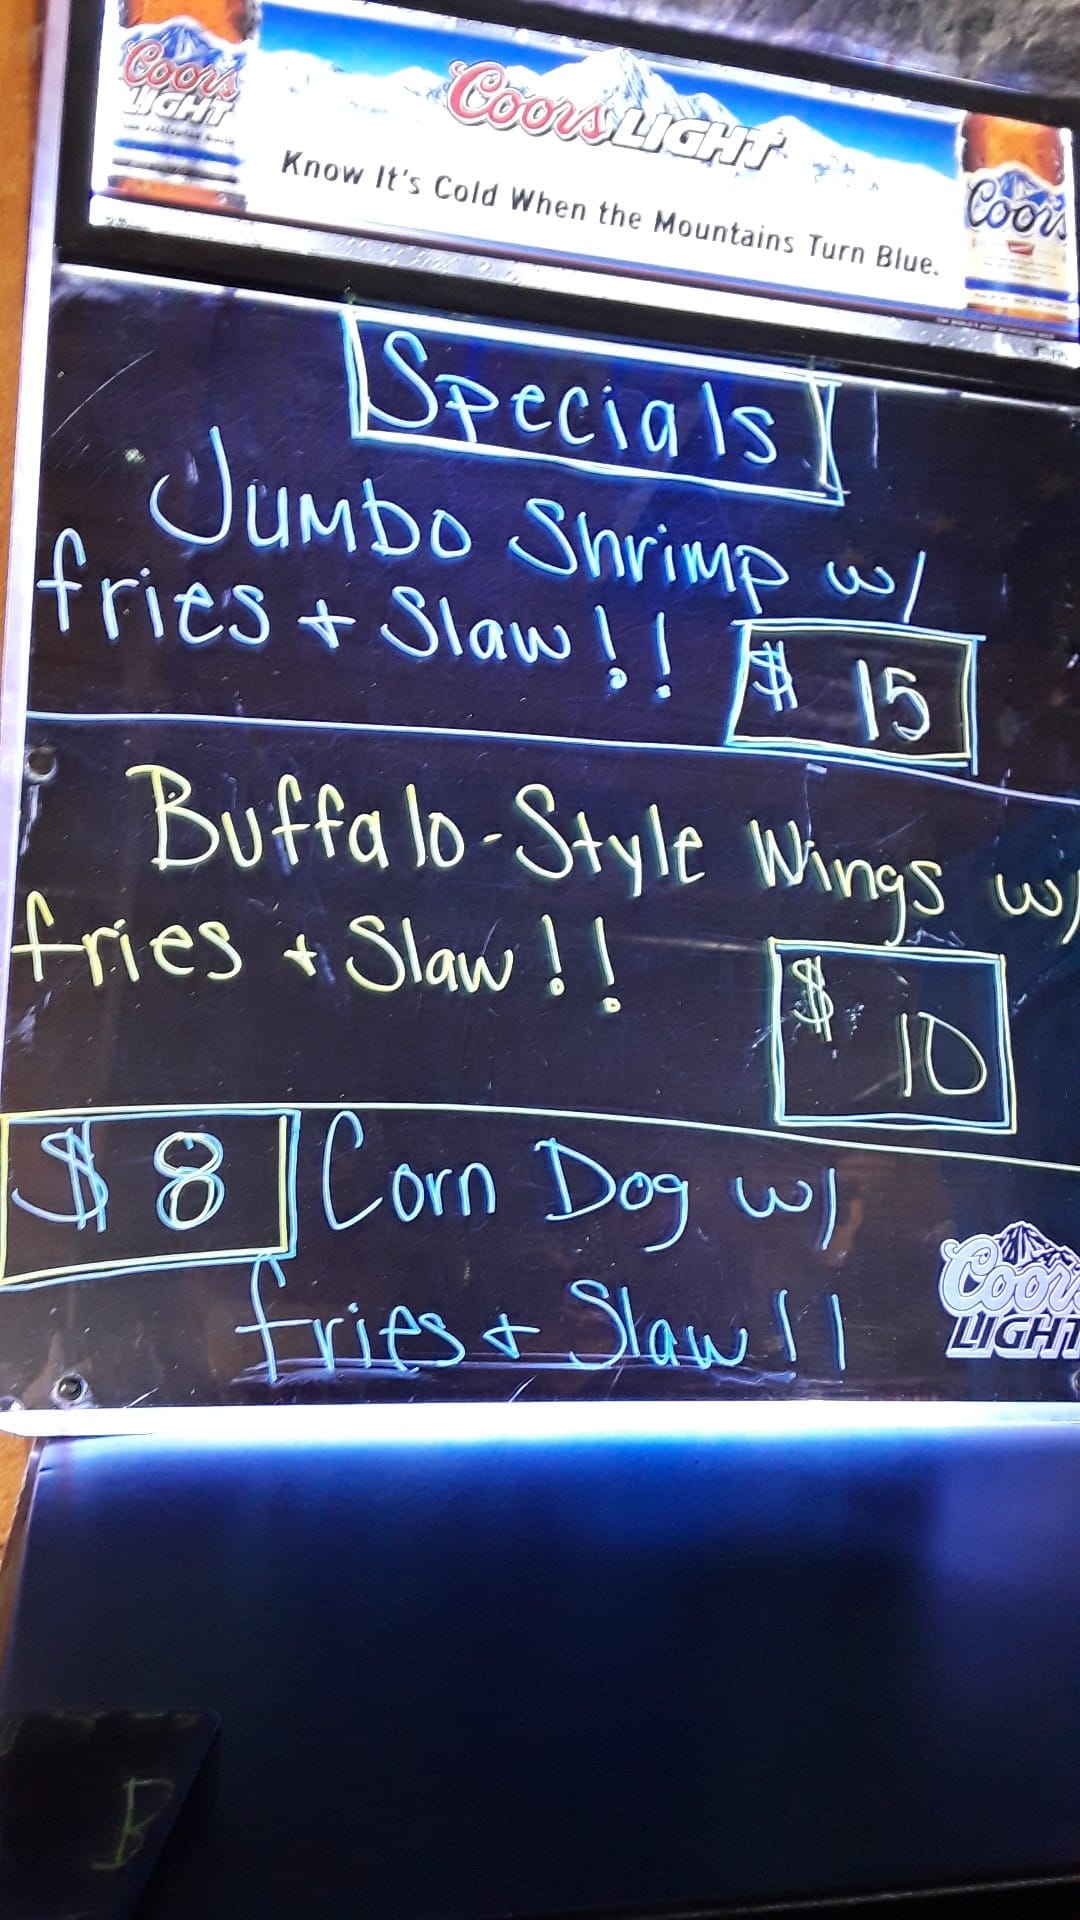 Coors LIGHT
Coors LIGHT
Know It's Cold When the Mountains Turn Blue.
Coors
Specials
Jumbo Shrimp w/
fries + Slaw!!
$ 15
Buffalo-Style Wings w/
fries + Slaw!!
$ 10
$ 8 Corn Dog w/
fries + Slaw!!
Coors
LIGHT